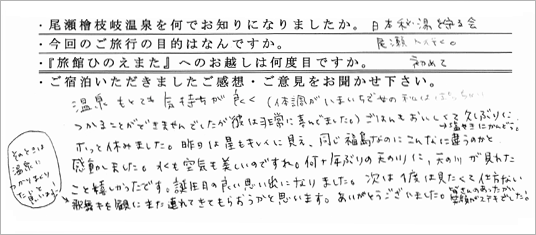 ・尾瀬檜枝岐温泉を何でお知りになりましたか。 日本秘湯を守る会
・今回のご旅行の目的はなんですか。 尾瀬
・『旅館ひのえまた』へのお越しは何度目ですか。 初めて
・ご宿泊いただきましたご感想・ご意見をお聞かせ下さい。
温泉もとても気持ちが良く(体調がいまいちで
つかることができませんでしたが彼は非常に喜んでました)ごはんもおいしくて久しぶりに
ホッと休みました。昨日は星もキレイに見え、同じ福島なのにこんなに違うのかと
感動しました。水も空気も美しいのですね。何十年ぶりの天の川に、天の川が見れた
こと嬉しかったです。誕生日の良い思い出になりました。次は1度は見たくて仕方ない
歌舞伎を観にまた連れてきてもらおうかと思います。ありがとうございました。皆さんのあったかい
笑顔がステキでした。
そのときは
温泉に
つかりまくり
たいと
思います!